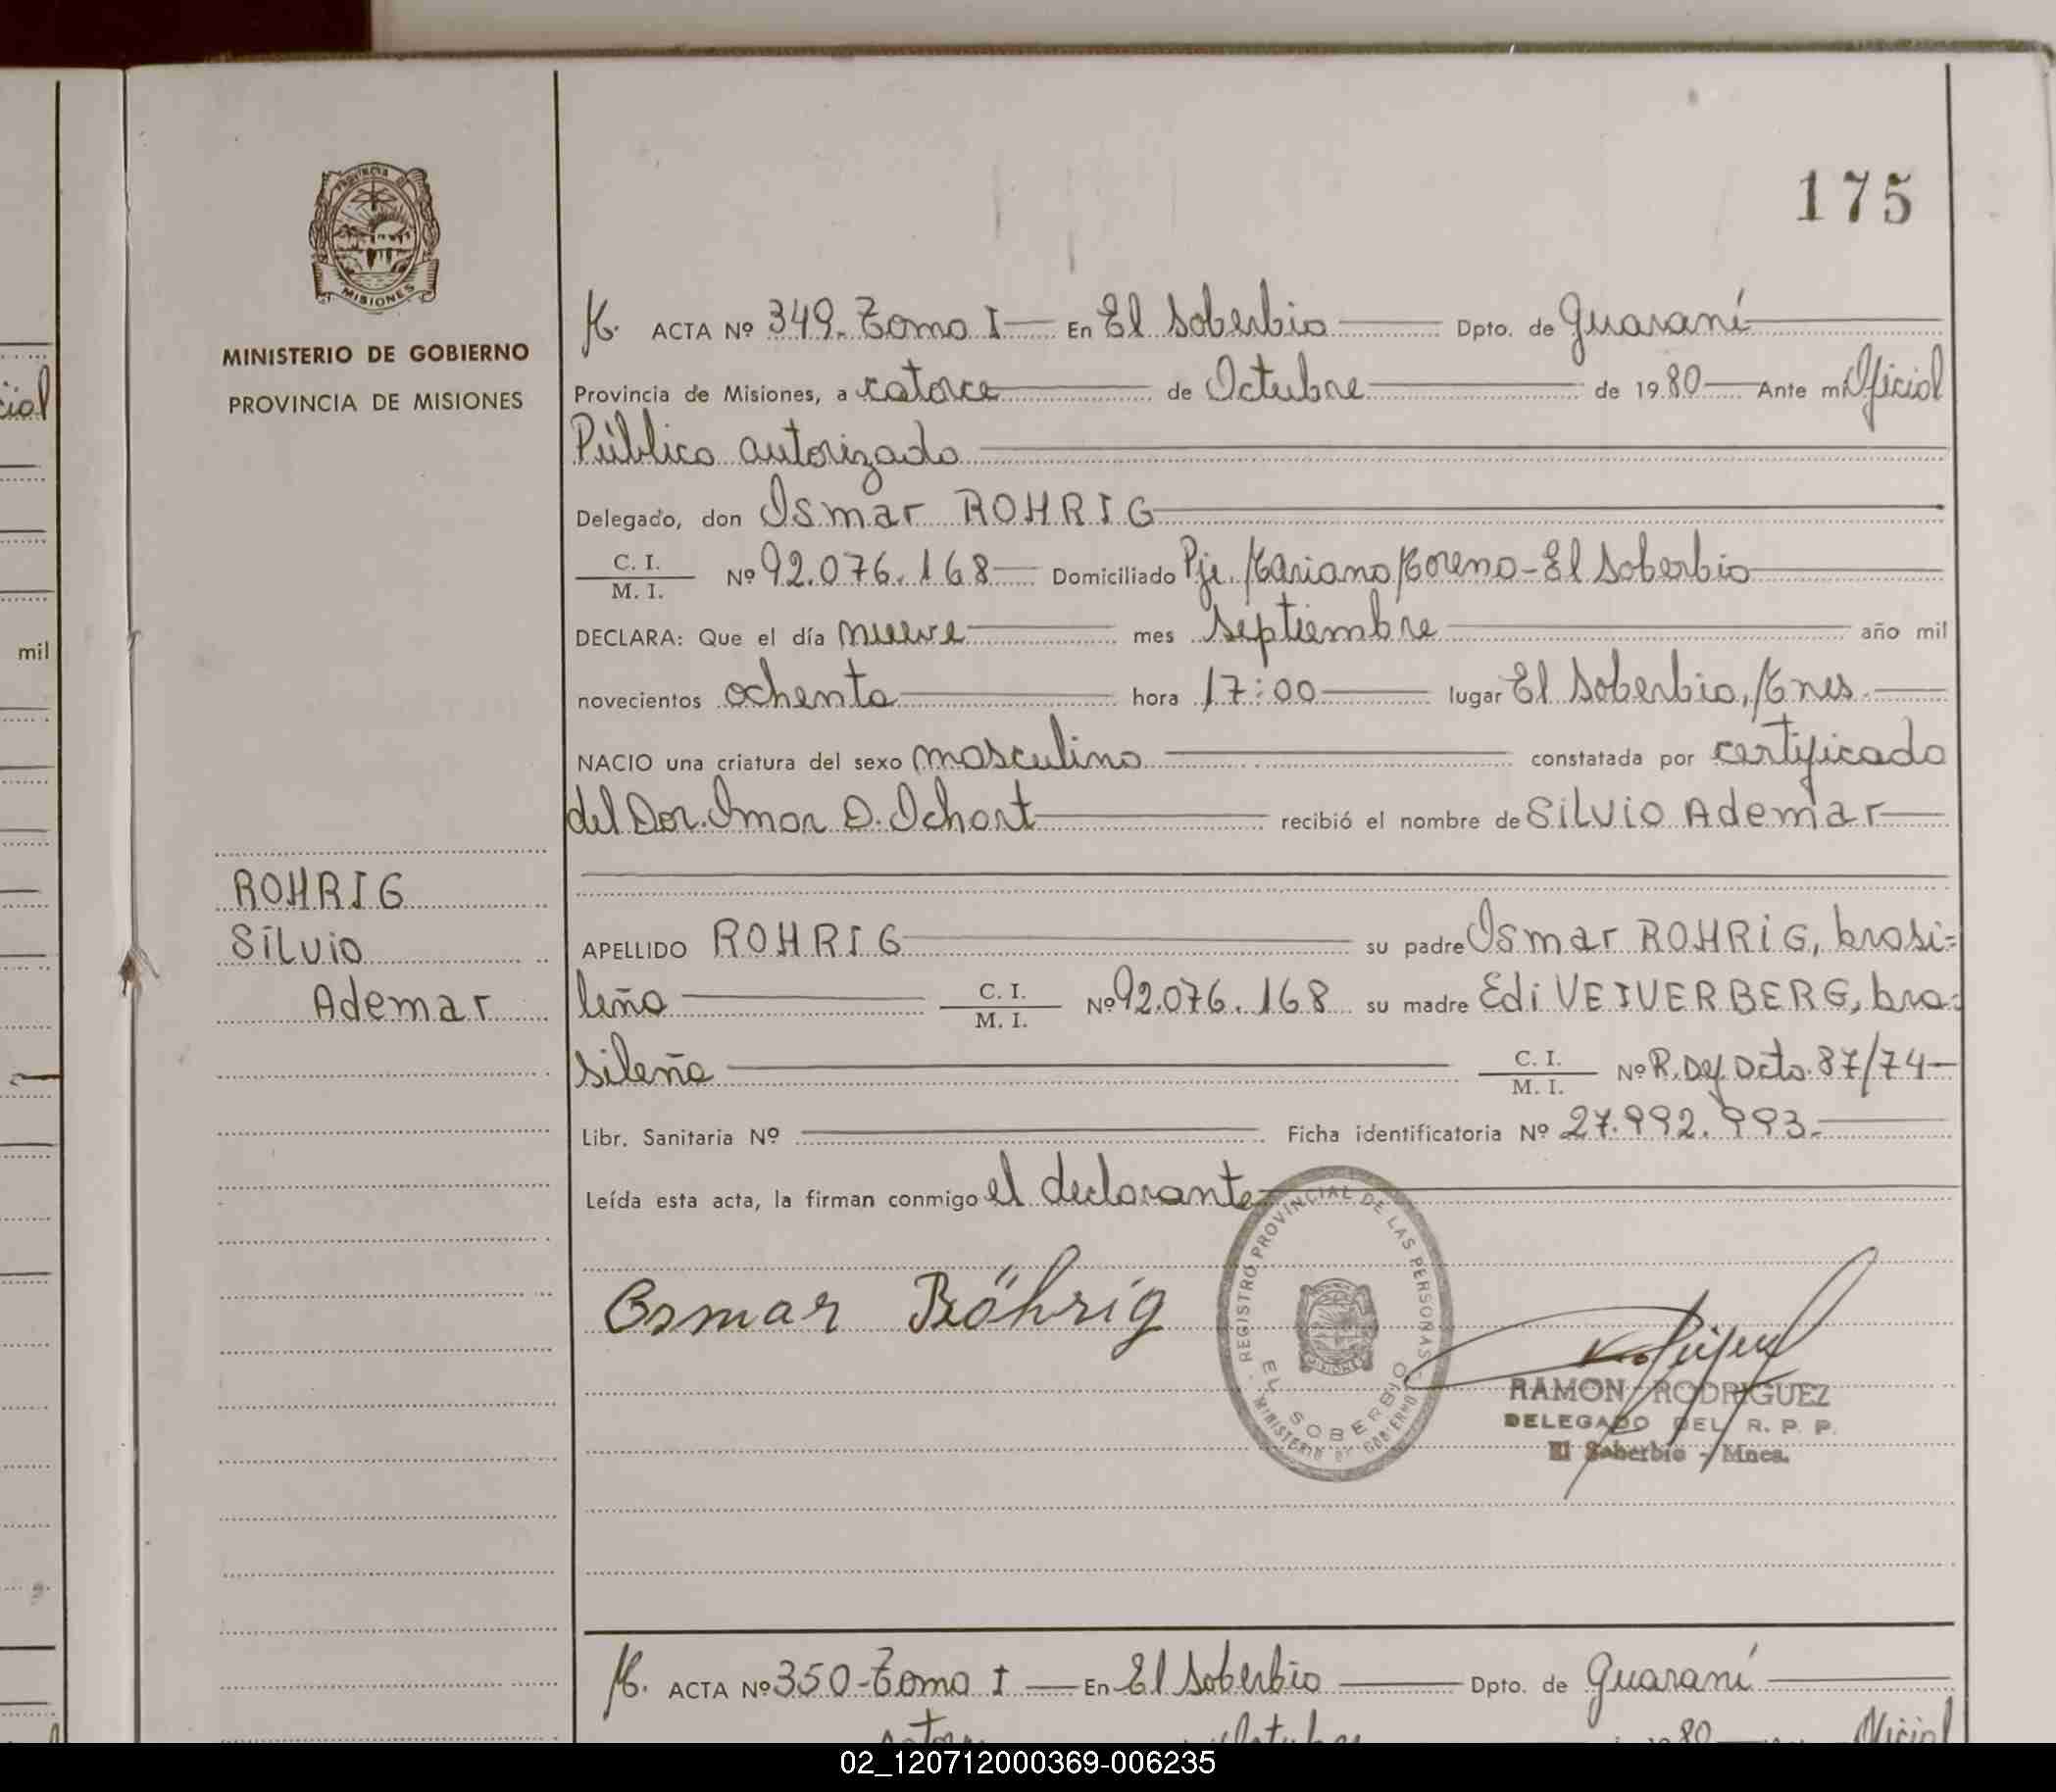 cial
mil
PROVINCIA DE
MISIONES
MINISTERIO DE GOBIERNO
PROVINCIA DE MISIONES
ROHRIG
Silvio
Ademar
175
M. ACTA Nº 349. Tomo I En El Soberbio Dpto. de Guaraní
Provincia de Misiones, a catorce de Octubre de 1980 Ante mí Oficial
Público autorizado
Delegado, don Osmar ROHRIG
C. I.
M. I. Nº 92.076.168 Domiciliado Pje. Mariano Moreno - El Soberbio
DECLARA: Que el día nueve mes septiembre año mil
novecientos ochenta hora 17:00 lugar El Soberbio, Mnes.
NACIO una criatura del sexo masculino constatada por certificado
del Dor. Omar D. Ochart recibió el nombre de Silvio Ademar
APELLIDO ROHRIG su padre Osmar ROHRIG, brasi=
leño C. I.
M. I. Nº 92.076.168 su madre Edi VEIVERBERG, bra=
sileña C. I.
M. I. Nº R. Def. Dcto. 87/74
Libr. Sanitaria Nº Ficha identificatoria Nº 27.992.993.
Leída esta acta, la firman conmigo el declarante
Osmar Röhrig
REGISTRO PROVINCIAL DE LAS PERSONAS
EL SOBERBIO
MINISTERIO DE GOBIERNO
RAMON RODRIGUEZ
DELEGADO DEL R. P. P.
El Soberbio - Mnes.
M. ACTA Nº 350 - Tomo I En El Soberbio Dpto. de Guaraní
catorce Octubre 1980 Oficial
02_120712000369-006235